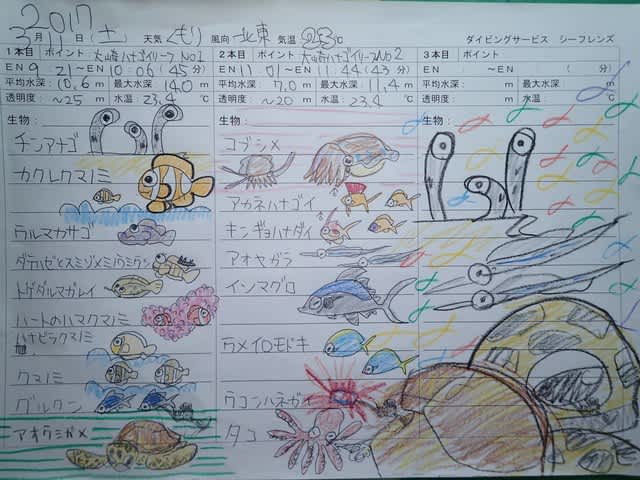 2017
3月11日(土) 天気 くもり 風向 北東 気温 23℃ ダイビングサービス シーフレンズ
1本目 ポイント 大崎ハナゴイリーフ No1
2本目 ポイント 大崎ハナゴイリーフNo2
3本目 ポイント
EN 9:21〜EN 10:06 (45分)
EN 11:01〜EN 11:44 (43分)
EN : 〜EN : ( 分)
平均水深: 10.6 m 最大水深 14.0 m
平均水深: 7.0 m 最大水深: 11.4 m
平均水深: m 最大水深: m
透明度: 〜25 m 水温: 23.4 ℃
透明度: 〜20 m 水温: 23.4 ℃
透明度: m 水温: ℃
生物:
チンアナゴ
カクレクマノミ
ウルマカサゴ
ダテハゼとスミゾメミノウミウシ
トゲダルマガレイ
ハートのハマクマノミ
ハナビラクマノミ
クマノミ
グルクン
アオウミガメ
生物:
コブシメ
アカネハナゴイ
キンギョハナダイ
アオヤガラ
イソマグロ
ウメイロモドキ
ウコンハネガイ
タコ
生物: